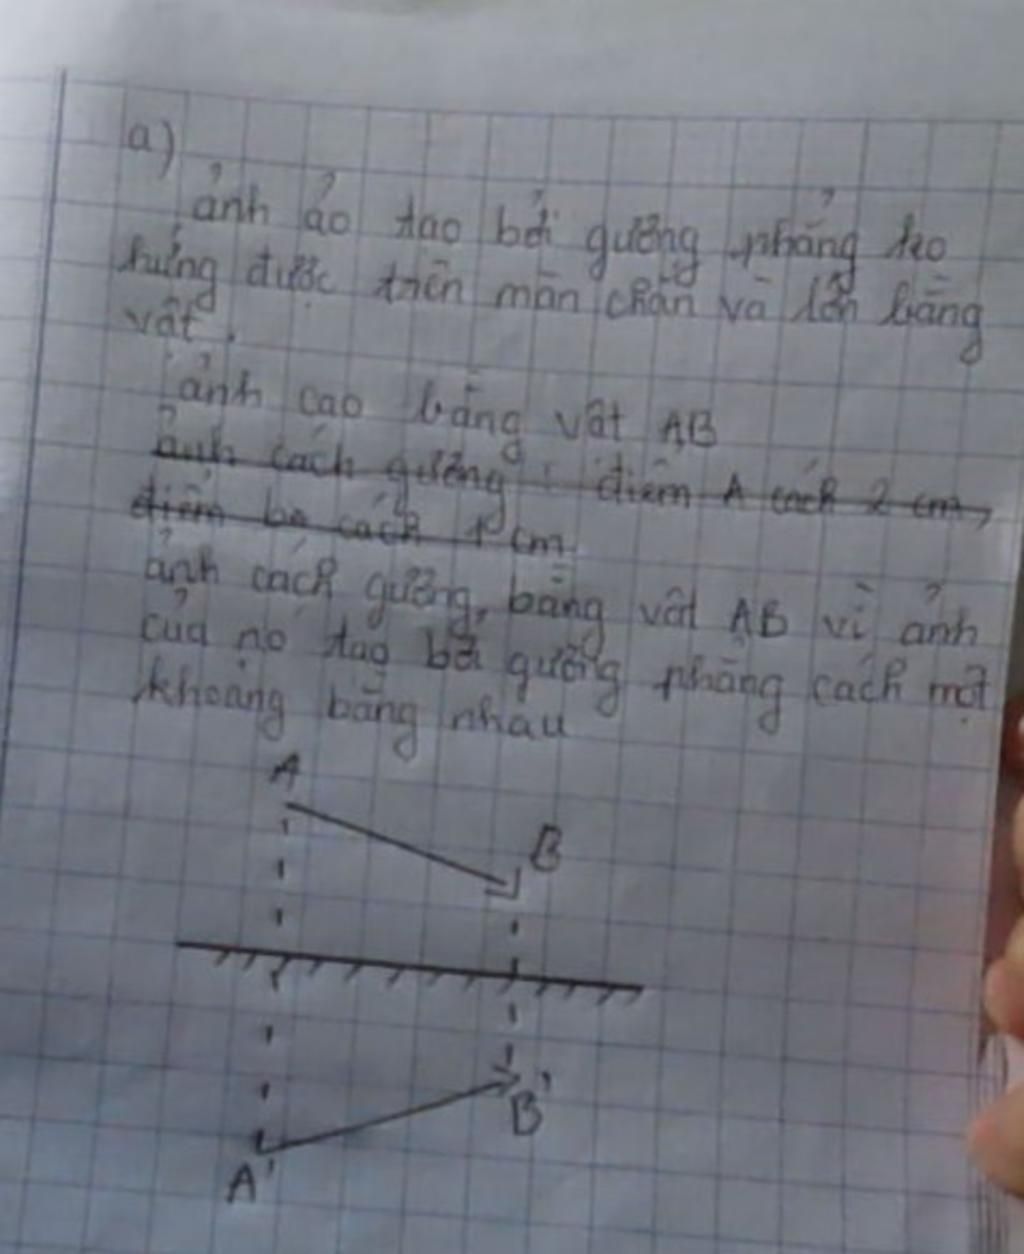 a)
ảnh ảo tạo bởi gương phẳng ko
hứng được trên màn chắn và lớn bằng
vật.
ảnh cao bằng vật AB
ảnh cách gương : điểm A cách 2 cm,
điểm b cách 1 cm.
ảnh cách gương, bằng vật AB vì ảnh
của nó tạo bởi gương phẳng cách một
khoảng bằng nhau
A
B
B'
A'